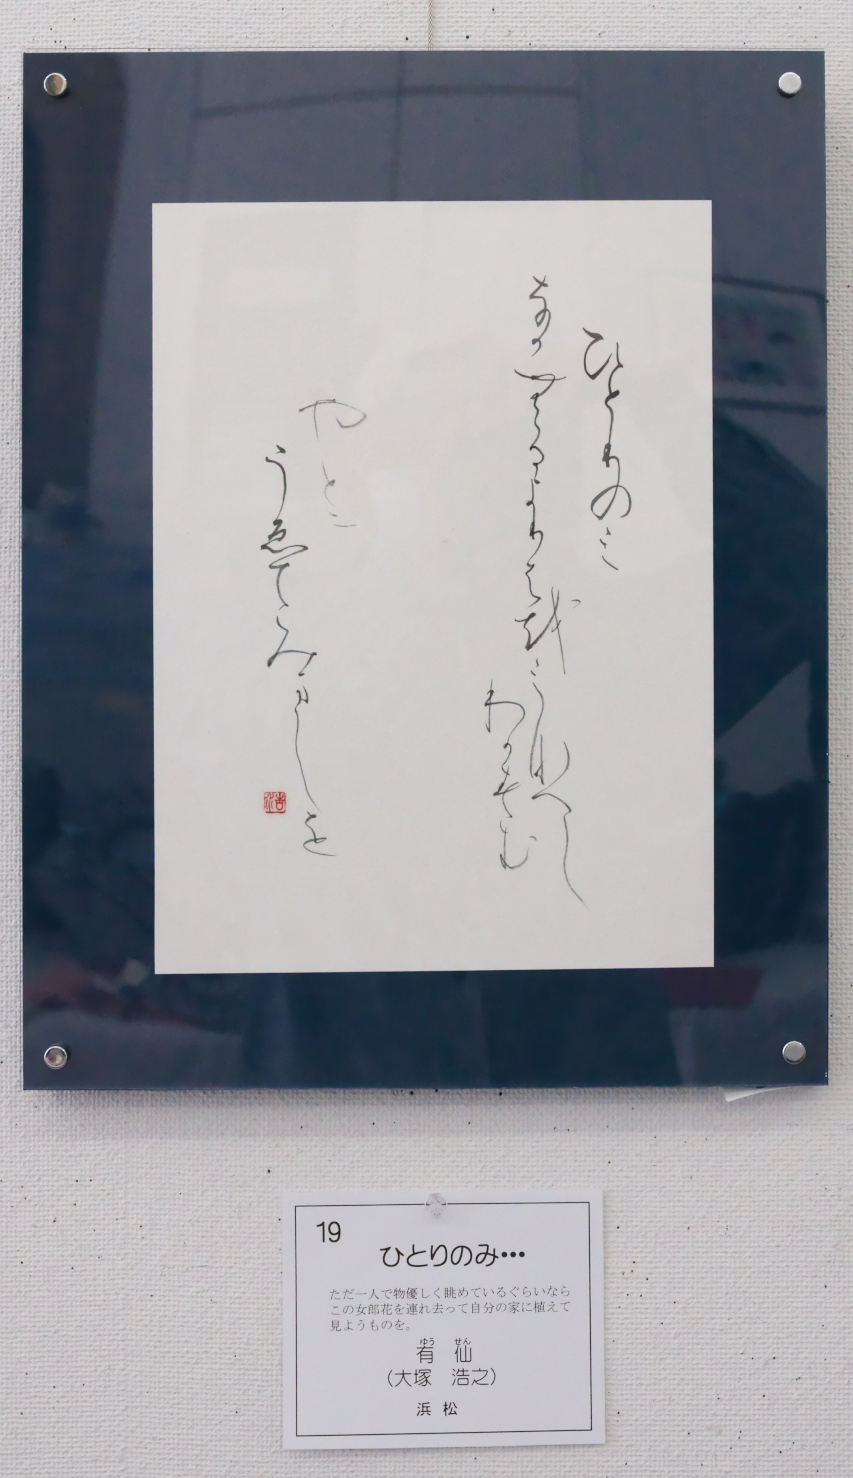 ひとりのミ
なかむるよりはをミなへし
わかすむ
やとに
うゑてみましを
浩
19
ひとりのみ•••
ただ一人で物優しく眺めているぐらいなら
この女郎花を連れ去って自分の家に植えて
見ようものを。
ゆう せん
仙
(大塚 浩之)
浜松